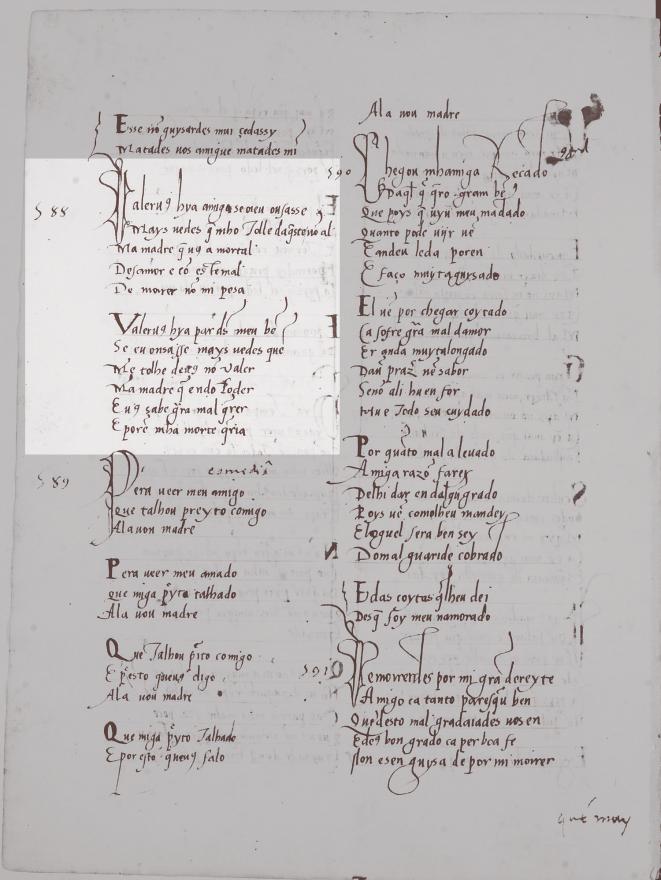 Esse nō guysardes mui çedassy
Matades uos amigue matades mi
588
Valerug hya amigo se meu ousasse
Mays uedes q̄ mho Tolle daq̄sto nō al
Ma madre q̄ ug a mortal
Desamor e cō este mal
De morrer nō mi pesa
Valerug hya par d's meu bē
Se eu ousasse mays uedes que
Me tolhe deug nō ualer
Ma madre q̄ endo Poder
Eug sabe grā mal q̄rer
E porē mha morte q̄ria
589
Pera ueer meu amigo
Que talhou preyto comigo
Ala uou madre
Pera ueer meu amado
Que miga p̄yto talhado
Ala uou madre
Que Talhou p̄ito comigo
E p̄esto queug digo
Ala uou madre
Que miga p̄yto Talhado
E por esto queug falo
Ala uou madre
590
Chegou mhamiga Recado
Daq̄l q̄ q̄ro gram bē
Que poys q̄ uyu meu mādado
Quanto pode uijr uē
E andeu leda poren
E faço muyt aguysado
El uē por chegar coytado
Ca sofre grā mal damor
Er anda muyt alongado
Dau' praz' nē sabor
Senō ali hu eu for
Hu e Todo seu cuydado
Por quāto mal a leuado
Amiga razō farey
Delhi dar en dalgū grado
Poys uē como lheu mandey
E loguel sera ben sey
Do mal guaride cobrado
E das coytas q̄ lheu dei
Desq̄ foy meu namorado
591
Remoiredes por mi grā dereyte
Amigo ca tanto paresqu ben
Que desto mal grad aiades uos en
E deg bon grado ca per boa fe
Non e sen guysa de por mi moirer
que may